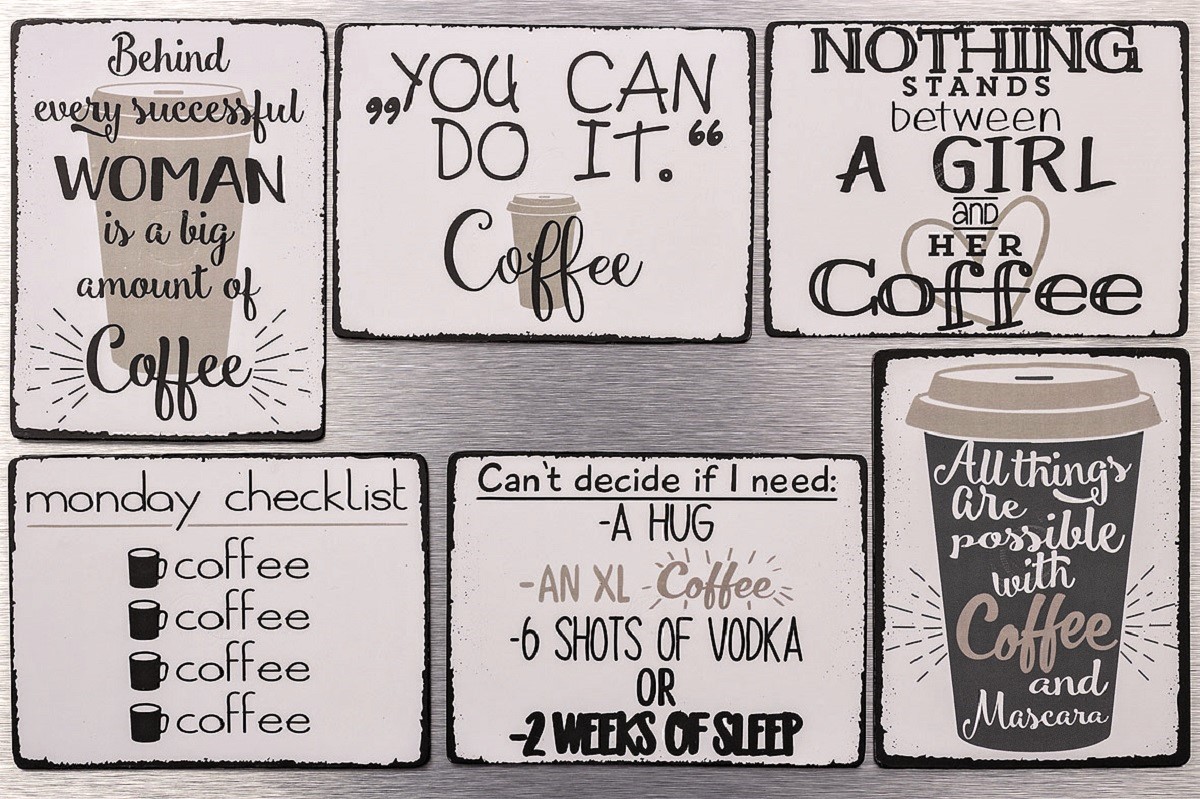 Behind
every successful
WOMAN
is a big
amount of
Coffee
„YOU CAN
DO IT.“
Coffee
NOTHING
STANDS
between
A GIRL
and
HER
Coffee
monday checklist
coffee
coffee
coffee
coffee
Can't decide if I need:
-A HUG
-AN XL Coffee
-6 SHOTS OF VODKA
OR
-2 WEEKS OF SLEEP
All things
are
possible
with
Coffee
and
Mascara